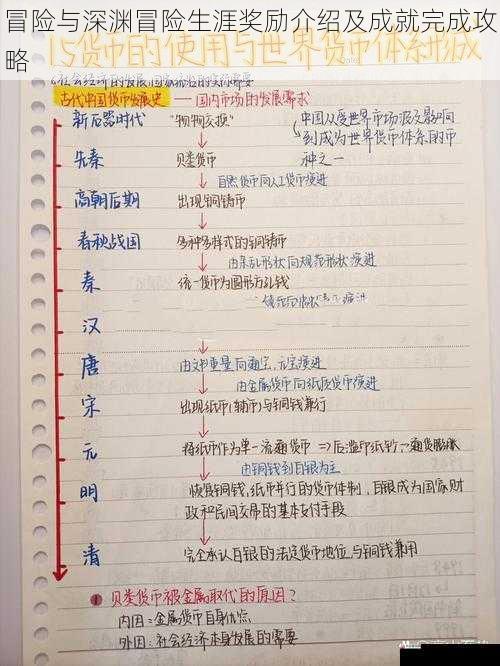 冒险与深渊冒险生涯奖励介绍及成就完成攻略
15货币的使用与世界货币体系
古代中国货币发展史 —— 国内市场的发展需求
新石器时代 "物物交换"
中国从受世界市场波及影响
到成为世界货币体系的币
种之一
先秦 贝类货币
自然货币向人工货币演进
商朝后期 出现铜铸币
春秋战国 多种多样式的铜铸币
由杂乱形状向规范形状演进
秦 统一货币为圆形方孔钱
汉
唐 由文书重量向通宝、元宝演进
由金属货币向纸质货币演进
宋 出现纸币(辅币)与铜钱兼行
元 将纸币作为单一流通货币 ⇒后滥印纸钞→通货膨胀
由铜钱到白银为主
明 恢复铜钱,纸币并行的货币体制,白银成为国家财
政和民间交易的基本支付手段
清 完全承认白银的法定货币地位,与铜钱兼用
1 贝类货币被金属取代的原因?
内因:金属货币自身优点
外因:社会经济本身发展的需要